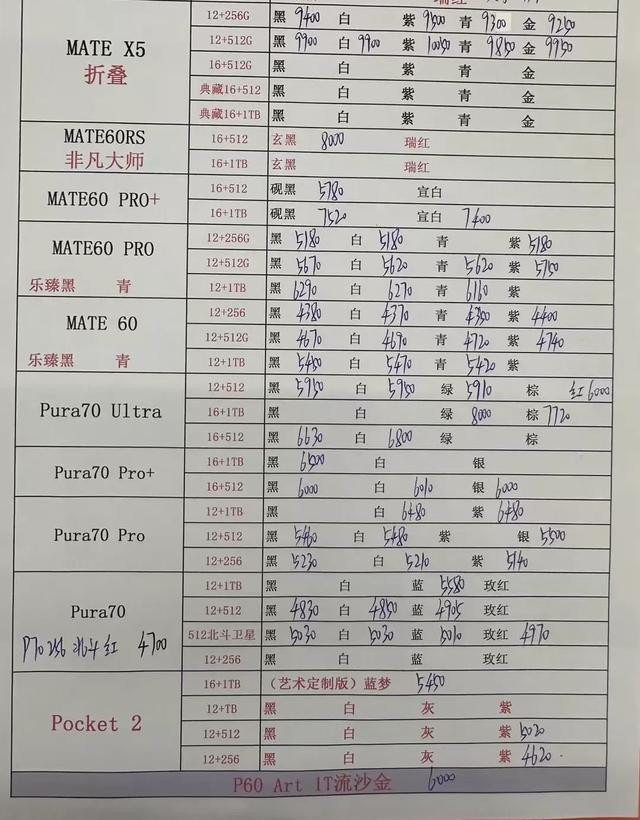 12+256G 黑 9400 白 紫 9500 青 9300 金 9250
MATE X5 12+512G 黑 9900 白 9900 紫 10050 青 9850 金 9950
折叠 16+512G 黑 白 紫 青 金
典藏16+512 黑 白 紫 青 金
典藏16+1TB 黑 白 紫 青 金
MATE60RS 16+512 玄黑 8000 瑞红
非凡大师 16+1TB 玄黑 瑞红
MATE60 PRO+ 16+512 砚黑 5780 宣白
16+1TB 砚黑 7520 宣白 7400
MATE60 PRO 12+256G 黑 5180 白 5180 青 紫 5180
12+512G 黑 5670 白 5620 青 5620 紫 5750
乐臻黑 青 12+1TB 黑 6290 白 6270 青 6160 紫
MATE 60 12+256 黑 4380 白 4370 青 4350 紫 4400
12+512G 黑 4670 白 4690 青 4720 紫 4740
乐臻黑 青 12+1TB 黑 5450 白 5470 青 5420 紫
Pura70 Ultra 12+512 黑 5950 白 5950 绿 5910 棕 红 6000
16+1TB 黑 白 绿 8000 棕 7720
16+512 黑 6630 白 6800 绿 棕
Pura70 Pro+ 16+1TB 黑 6500 白 银
16+512 黑 6000 白 6010 银 6000
Pura70 Pro 12+1TB 黑 白 6480 紫 6480
12+512 黑 5460 白 5480 紫 银 5500
12+256 黑 5230 白 5210 紫 5140
Pura70 12+1TB 黑 白 蓝 5580 玫红
12+512 黑 4830 白 4850 蓝 4905 玫红
P70 256 北斗 红 4700 512北斗卫星 黑 5030 白 5030 蓝 5010 玫红 4970
12+256 黑 白 蓝 玫红
Pocket 2 16+1TB (艺术定制版)蓝梦 5450
12+TB 黑 白 灰 紫
12+512 黑 白 灰 紫 5020
12+256 黑 白 灰 紫 4620
P60 Art 1T流沙金 6000